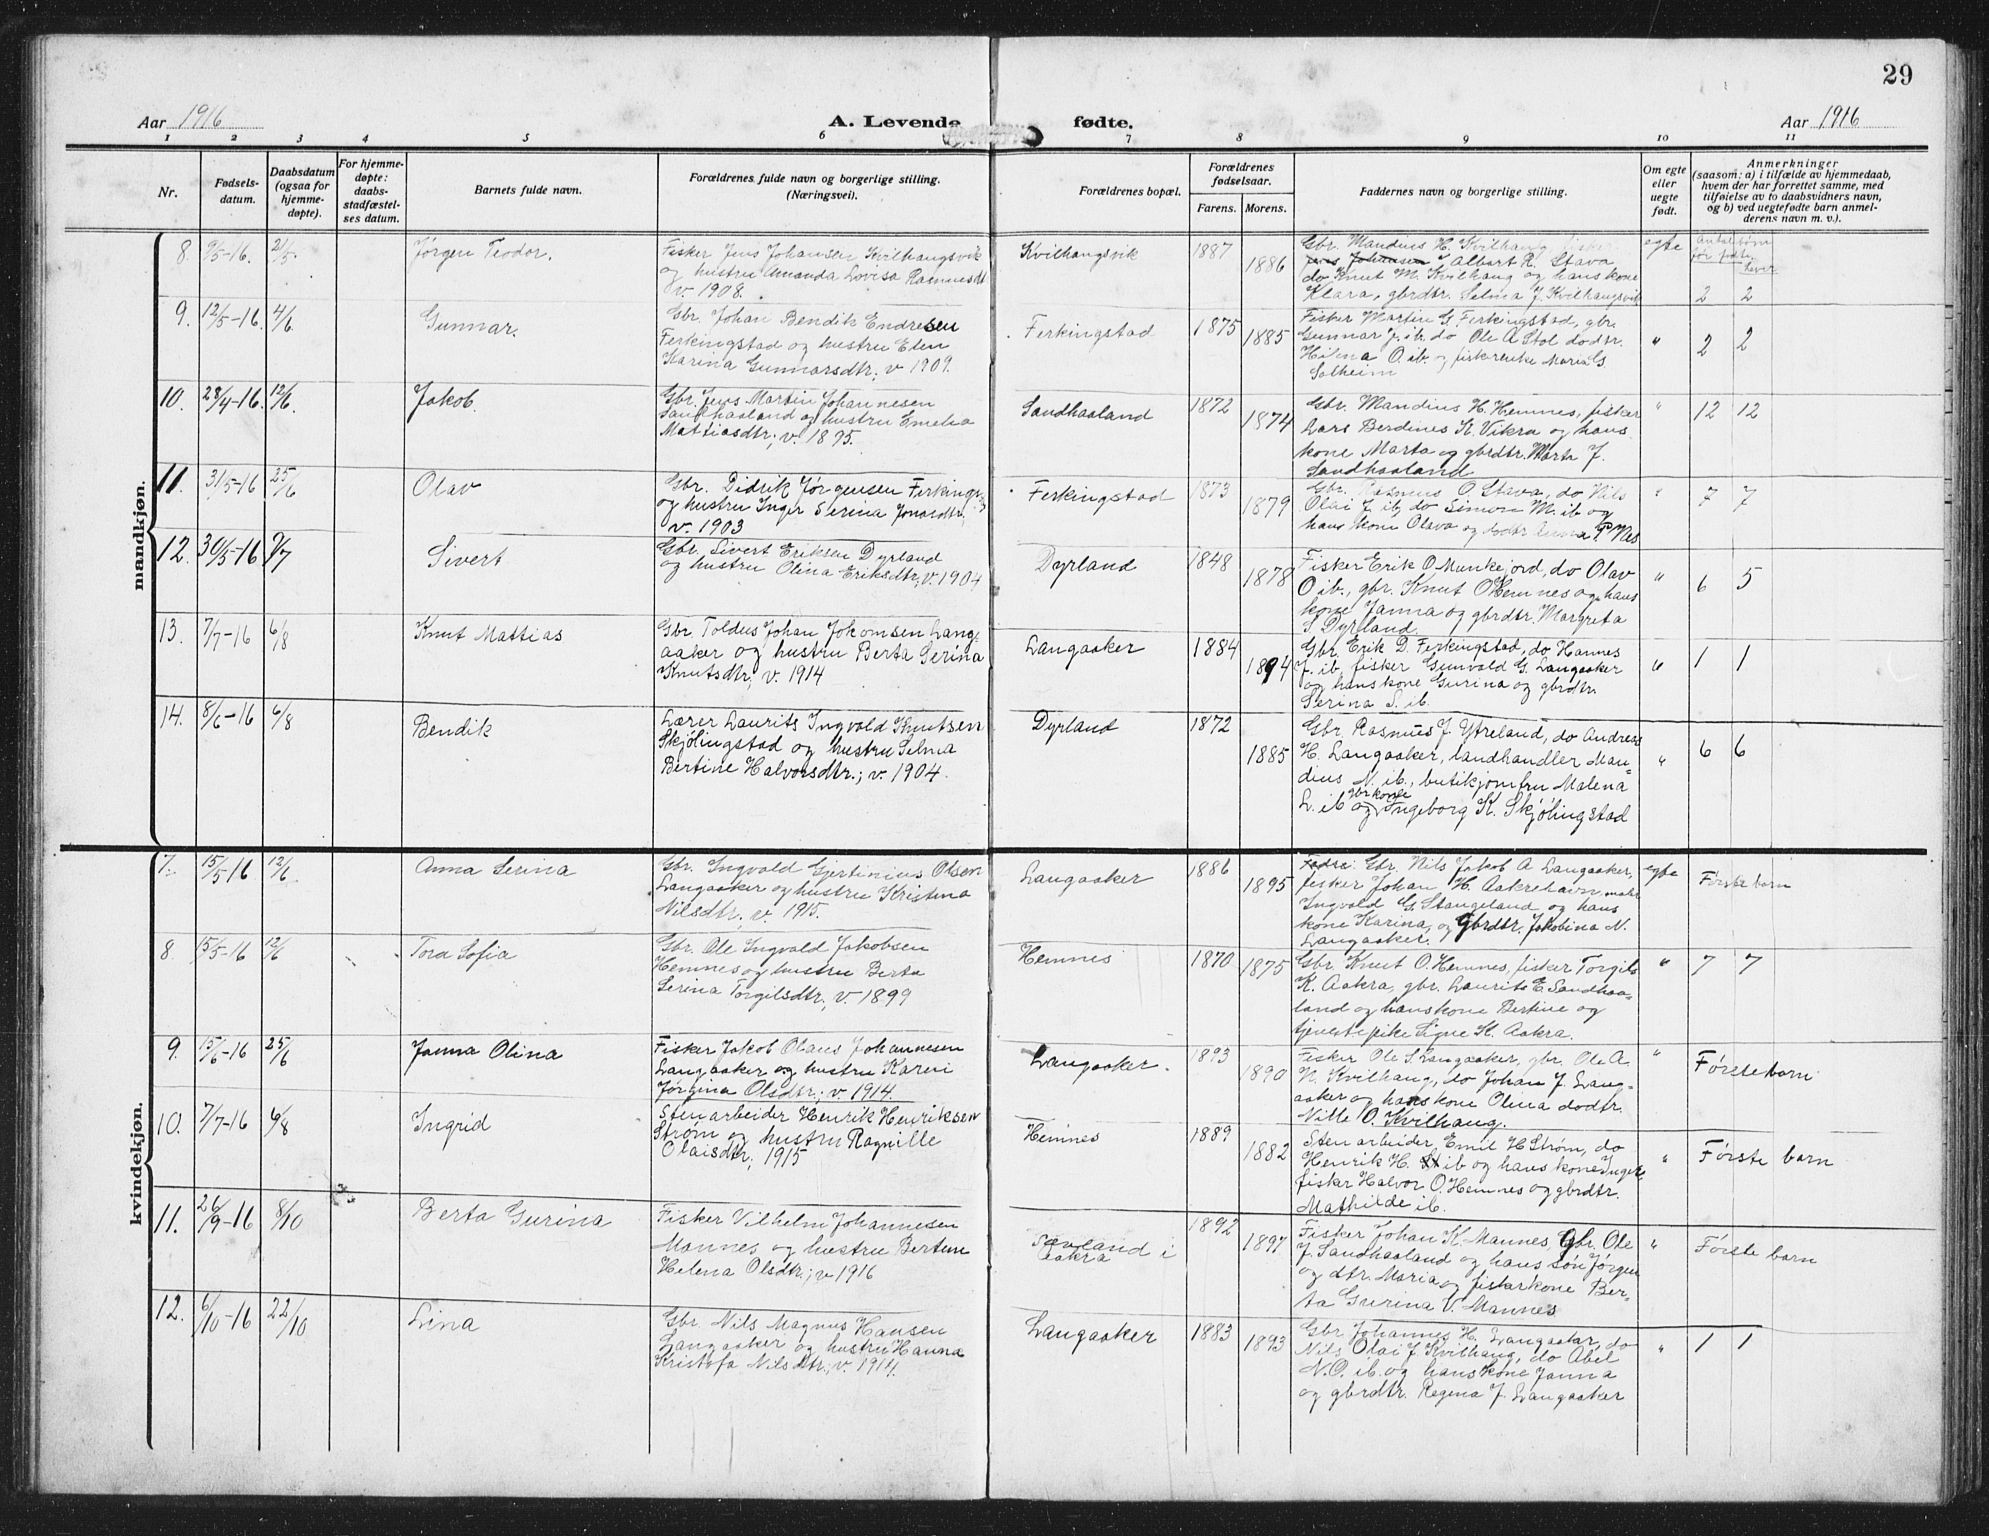 29
Aar 1916
A. Levende fødte.
Aar 1916
1 2 3 4 5 6 7 8 9 10 11
Nr.
Fødsels-
datum.
Daabsdatum
(ogsaa for
hjemme-
døpte).
For hjemme-
døpte:
daabs-
stadfæstel-
ses datum.
Barnets fulde navn.
Forældrenes fulde navn og borgerlige stilling.
(Næringsvei).
Forældrenes bopæl.
Forældrenes
fødselsaar.
Farens. Morens.
Faddernes navn og borgerlige stilling.
Om egte
eller
uegte
født.
Anmerkninger
(saasom: a) i tilfælde av hjemmedaab,
hvem der har forrettet samme, med
tilføielse av to daabsvidners navn,
og b) ved uegtefødte barn anmel-
derens navn m. v.).
mandkjøn.
8. 9/5-16. 21/5.
Jørgen Teodor.
Fisker Jens Johansen Kvilhaugsvik
og hustru Amanda Lovisa Rasmusdt
v. 1908.
Kvilhaugsvik
1887
1886
Gbr. Mandius H. Kvilhaug fisker
Jens Johansen Albert R. Stava
do Knut M. Kvilhaug og hans kone
Klara, gbrdtr. Selma J. Kvilhaugsvik
egte
før fødte
Lever
2 2
9. 12/5-16. 4/6.
Gunnar.
Gbr. Johan Bendik Endresen
Ferkingstad og hustru Elen
Karina Gunnarsdtr; v 1909.
Ferkingstad
1875
1885
Fisker Martin G. Ferkingstad, gbr.
Gunnar J. ib. do Ole A Stol dodtr.
Hilma O. ib. og fiskerenke Maria G.
Solheim
" 2 2
10. 28/4-16. 12/6.
Jakob.
Gbr. Jens Martin Johannesen
Sandhaaland og hustru Emelia
Mattiasdtr; v. 1895.
Sandhaaland
1872
1874
Gbr. Mandius H. Hemnes, fisker
Lars Berdines K. Vikra og hans
kone Marta og gbrdtr. Marta J.
Sandhaaland
" 12 12
11. 31/5-16 25/6
Olav
Gbr. Didrik Jørgensen Ferkings-
og hustru Inger Serina Jonasdtr,
v. 1903
Ferkingstad
1873
1879
Gbr. Rasmus O. Stava, do Nils
Olai J. ib, do Simon M. ib og
hans kone Olava og dodtr Anna P. Nes
" 7 7
12. 30/5-16 9/7
Sivert
Gbr. Sivert Eriksen Dyrland
og hustru Olina Eriksdtr; v. 1904
Dyrland
1848
1878
Fisker Erik O Munkejord, do Olav
O ib., gbr. Knut O Hemnes og hans
kone Janna og gbrdtr. Margreta
S Dyrland.
" 6 5
13. 7/7-16 6/8
Knut Mattias
Gbr Toldus Johan Jakomsen Lang-
aaker og hustru Berta Serina
Knutsdtr; v. 1914
Langaaker
1884
1894
Gbr Erik D. Ferkingstad, do Hannes
J. ib. fisker Gunvald G. Langaaker
og hans kone Gurina og gbrdtr.
Serina S. ib.
" 1 1
14. 8/6-16 6/8
Bendik
Lærer Laurits Ingvald Knutsen
Skjølingstad og hustru Selma
Bertine Halvorsdtr.; v. 1904.
Dyrland
1872
1885
Gbr Rasmus J. Ytreland, do Andreas
H. Langaaker, landhandler Man-
dius N. ib., butikjomfru Malena
L. ib og gbrkone Ingeborg K. Skjølingstad
" 6 6
kvindekjøn.
7. 15/5 16 12/6
Anna Serina
Gbr. Ingvald Gjertinius Olsen
Langaaker og hustru Kristina
Nilsdtr, v. 1915.
Langaaker
1886
1895
Fadre: Gbr. Nils Jakob A Langaaker,
fisker Johan H. Aakrehavn
Ingvald G. Stangeland og hans
kone Karina, og gbrdtr. Jakobina N.
Langaaker.
egte Første barn
8. 15/5-16 12/6
Tora Sofia
Gbr. Ole Ingvald Jakobsen
Hemnes og hustru Berta
Serina Torgilsdtr; v. 1899
Hemnes
1870
1875
Gbr. Knut O. Hemnes, fisker Torgils
K. Aakra, gbr. Laurits E. Sandhaa-
land og hans kone Bertine og
tjenestepike Signe K. Aakra.
" 7 7
9. 15/6-16 25/6
Janna Olina
Fisker Jakob Olaus Johannesen
Langaaker og hustru Karen
Jørgina Olsdtr; v. 1914.
Langaaker.
1893
1890
Fisker Ole S. Langaaker, gbr. Ole A.
N. Kvilhaug, do Johan J. Lang-
aaker og hans kone Olina dodtr.
Nille O. Kvilhaug.
" Første barn
10. 7/7-16 6/8
Ingrid
Stenarbeider Henrik Henriksen
Strøm og hustru Ragnille
Olaisdtr; 1915
Hemnes
1889
1882
Stenarbeider, Emil H Strøm, do
Henrik H. ib og hans kone Inger
fisker Halvor O. Hemnes og gbrdtr.
Mathilde ib.
" Første barn
11. 26/9-16 8/10
Berta Gurina
Fisker Vilhelm Johannesen
Mannes og hustru
Helena Olsdtr.; v 1916
i
Aakra
1892
1897
Fisker Johan K. Mannes, Gbr. Ole
J. Sandhaaland og hans søn Jørgen
og dtr. Maria og fiskerkone Ber-
ta Gurina V. Mannes
" Første barn
12. 6/10-16 22/10
Lina
Gbr. Nils Magnus Hansen
Langaaker og hustru Hanna
Kristofa Nilsdtr; v. 1914.
Langaaker
1883
1893
Gbr. Johannes H. Langaaker, do
Nils Olai J. Kvilhaug, do Abel
N.O. ib. og hans kone Janna
og gbrdtr. Regina J. Langaaker
" 1 1